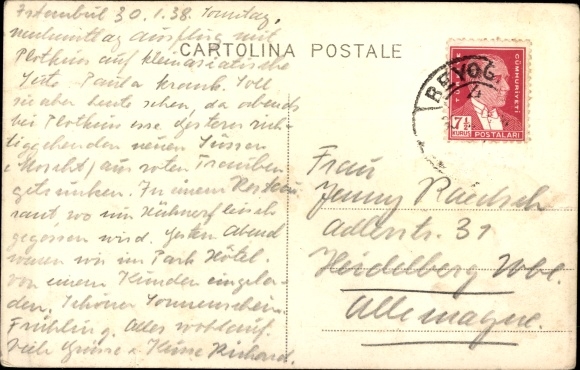 Istanbul 30.1.38. Sonntag,
nachmittag Ausflug mit
Plotkins auf kleinasiatische
Seite. Paula krank. Soll
sie aber heute sehen, da abends
bei Plotkins esse. Gestern rich-
tiggehenden neuen Süssen
(Moscht) aus roten Trauben
getrunken. In einem Restau-
rant wo nur Hühnerfleisch
gegessen wird. Gestern Abend
waren wir im Park Hotel.
von einem Kunden eingela-
den. Schöner Sonnenschein.
Frühling. Alles wohlauf.
Viele Grüsse & Küsse Richard.
CARTOLINA POSTALE
BEYOĞ
CUMHURIYETI
7½
KURUŞ
POSTALARI
Frau
Jenny
Adlerstr. 31
Heidelberg Wbl.
Allemagne.